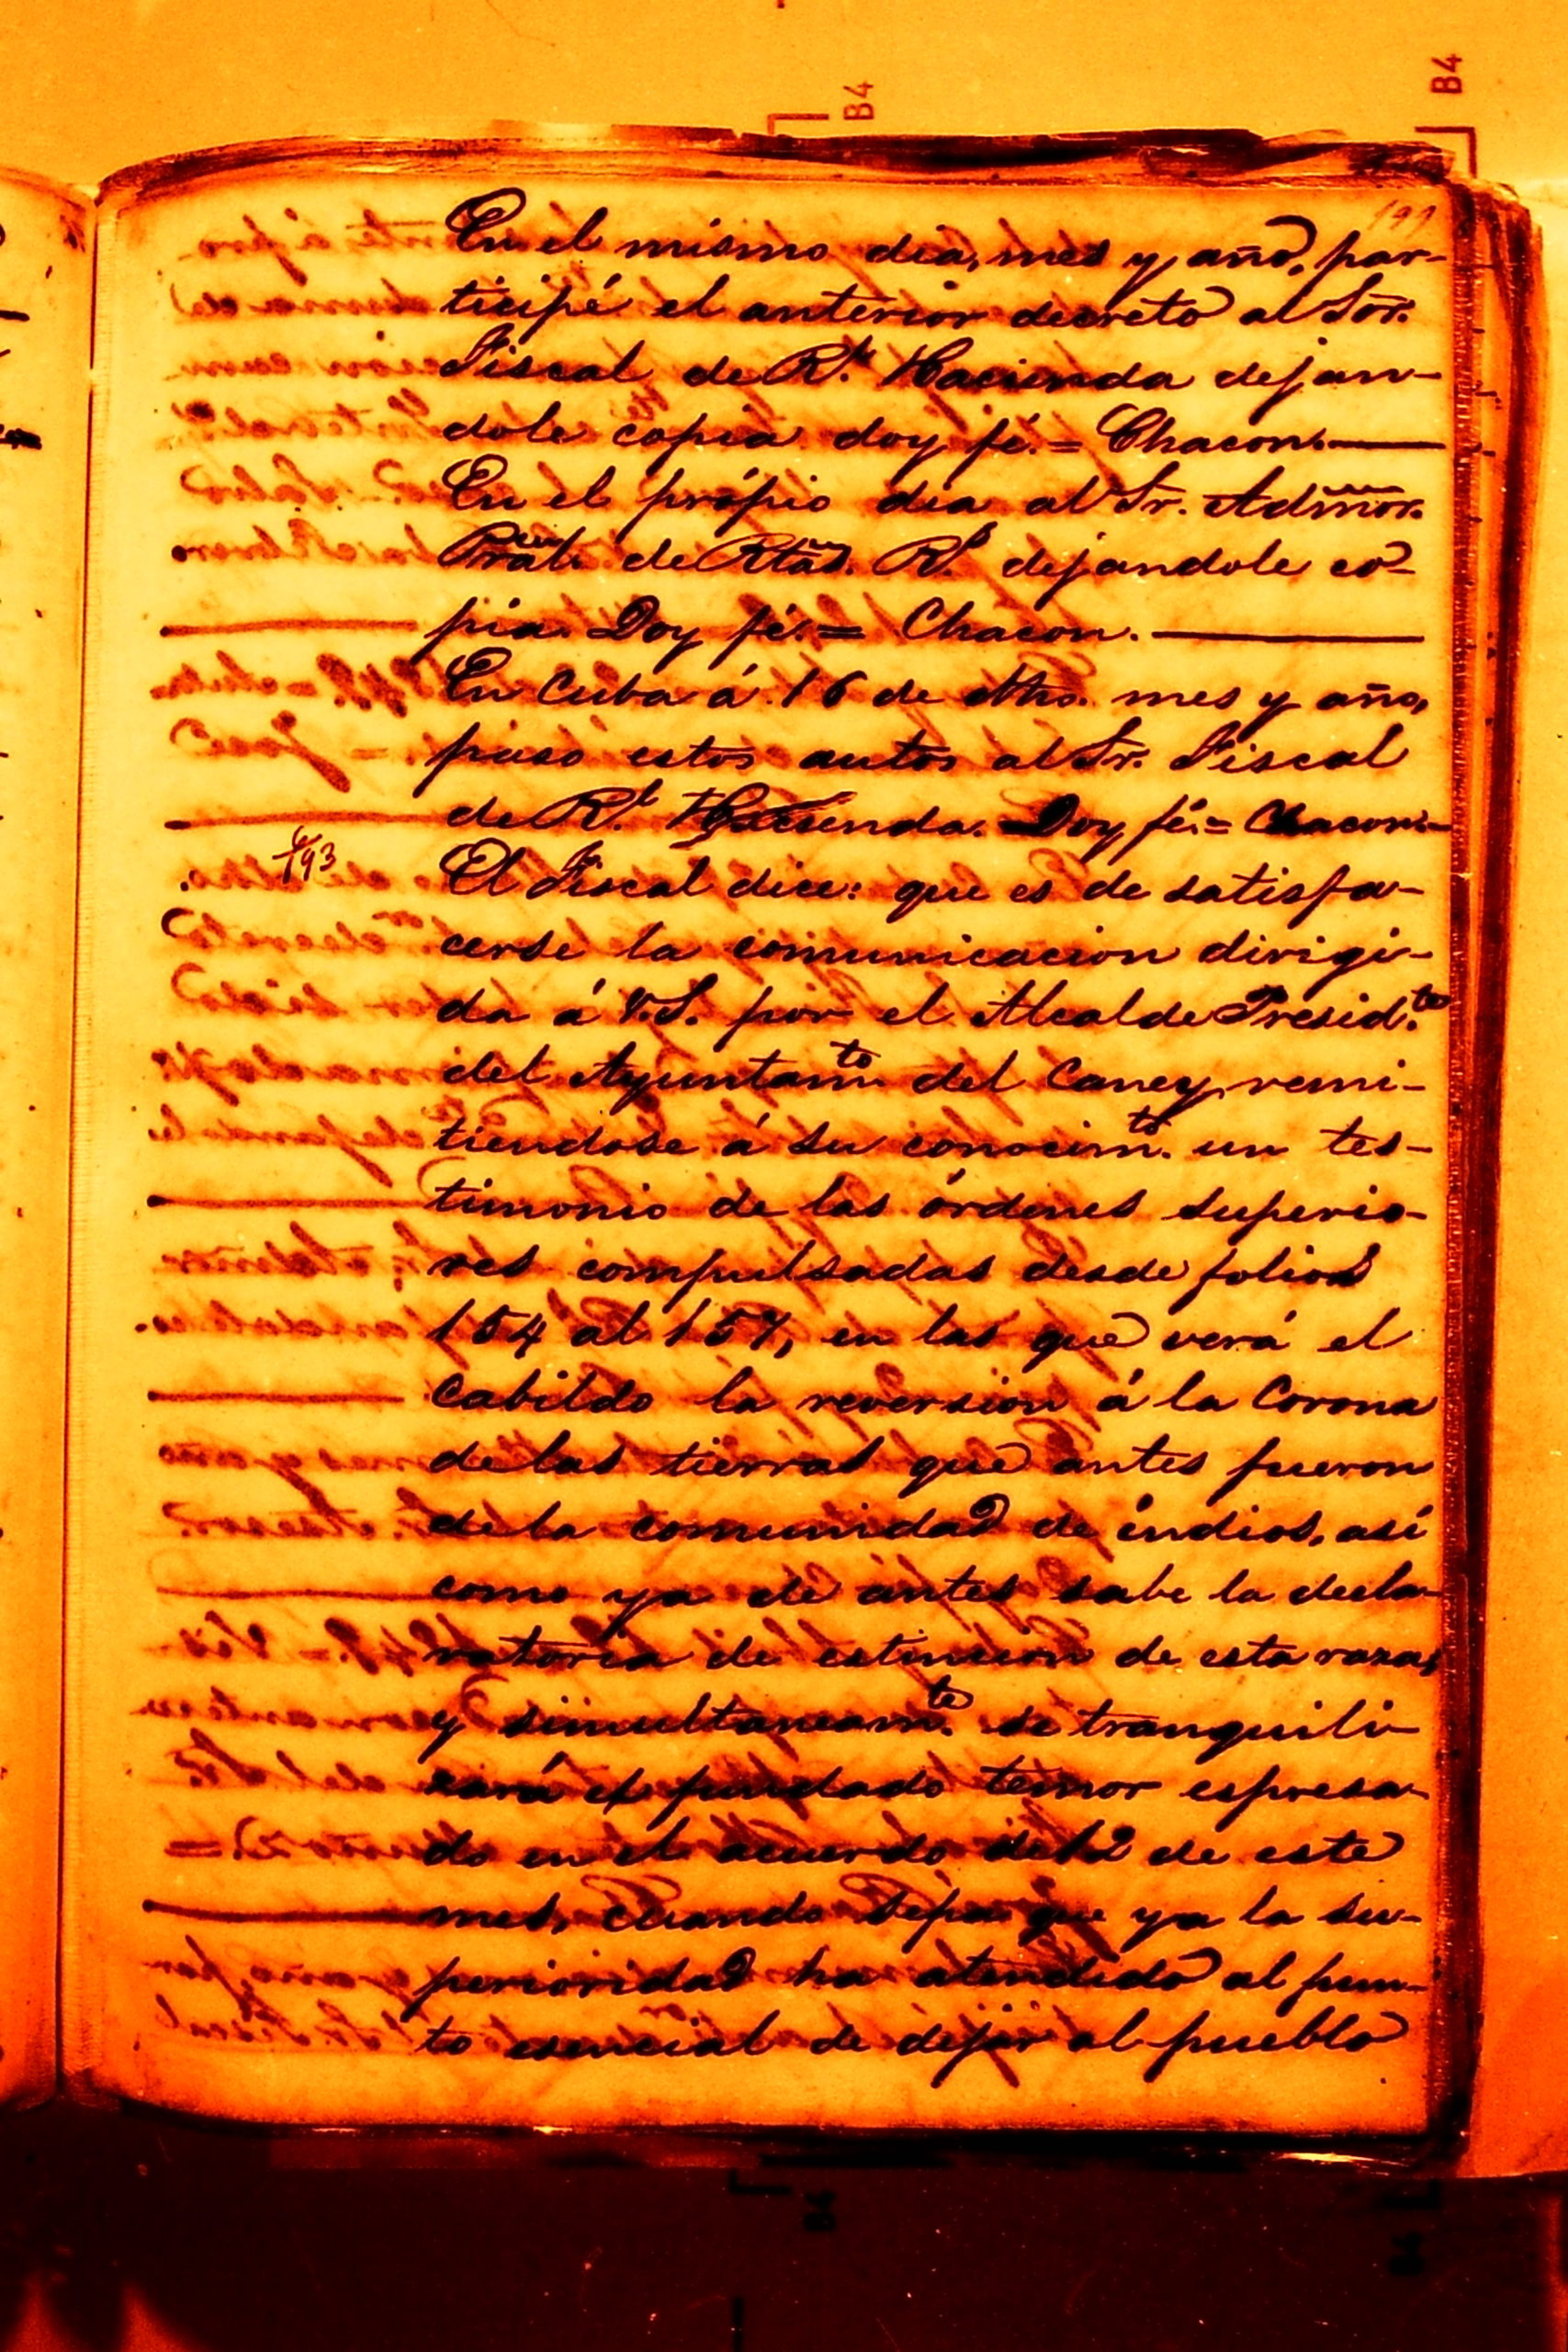 B4
B4
191
En el mismo dia, mes y año, par-
ticipé el anterior decreto al Sor.
Fiscal de Rl. Hacienda dejan-
dole copia doy fé.= Chacon.
En el própio dia al Sr. Admor.
Pral. de Rtas. Rs. dejandole co-
pia. Doy fé.= Chacon.
En Cuba á 16 de dho. mes y año,
puso estos autos al Sr. Fiscal
de Rl. Hacienda. Doy fé.= Chacon.
193
El Fiscal dice: que es de satisfa-
cerse la comunicacion dirigi-
da á V.S. por el Alcalde Presid.te
del Ayuntamto del Caney, remi-
tiendose á su conocim.to un tes-
timonio de las órdenes superio-
res compulsadas desde folios
154 al 157, en las que verá el
cabildo la reversion á la Corona
de las tierras que antes fueron
de la comunidad de indios, asi
como ya de antes sabe la decla-
ratoria de estincion de esta raza,
y simultaneam.te se tranquili-
zará el fundado temor espresa-
do en el acuerdo del 2 de este
mes, cuando sepa que ya la su-
perioridad ha atendido al pun-
to esencial de dejar al pueblo
B4
B4